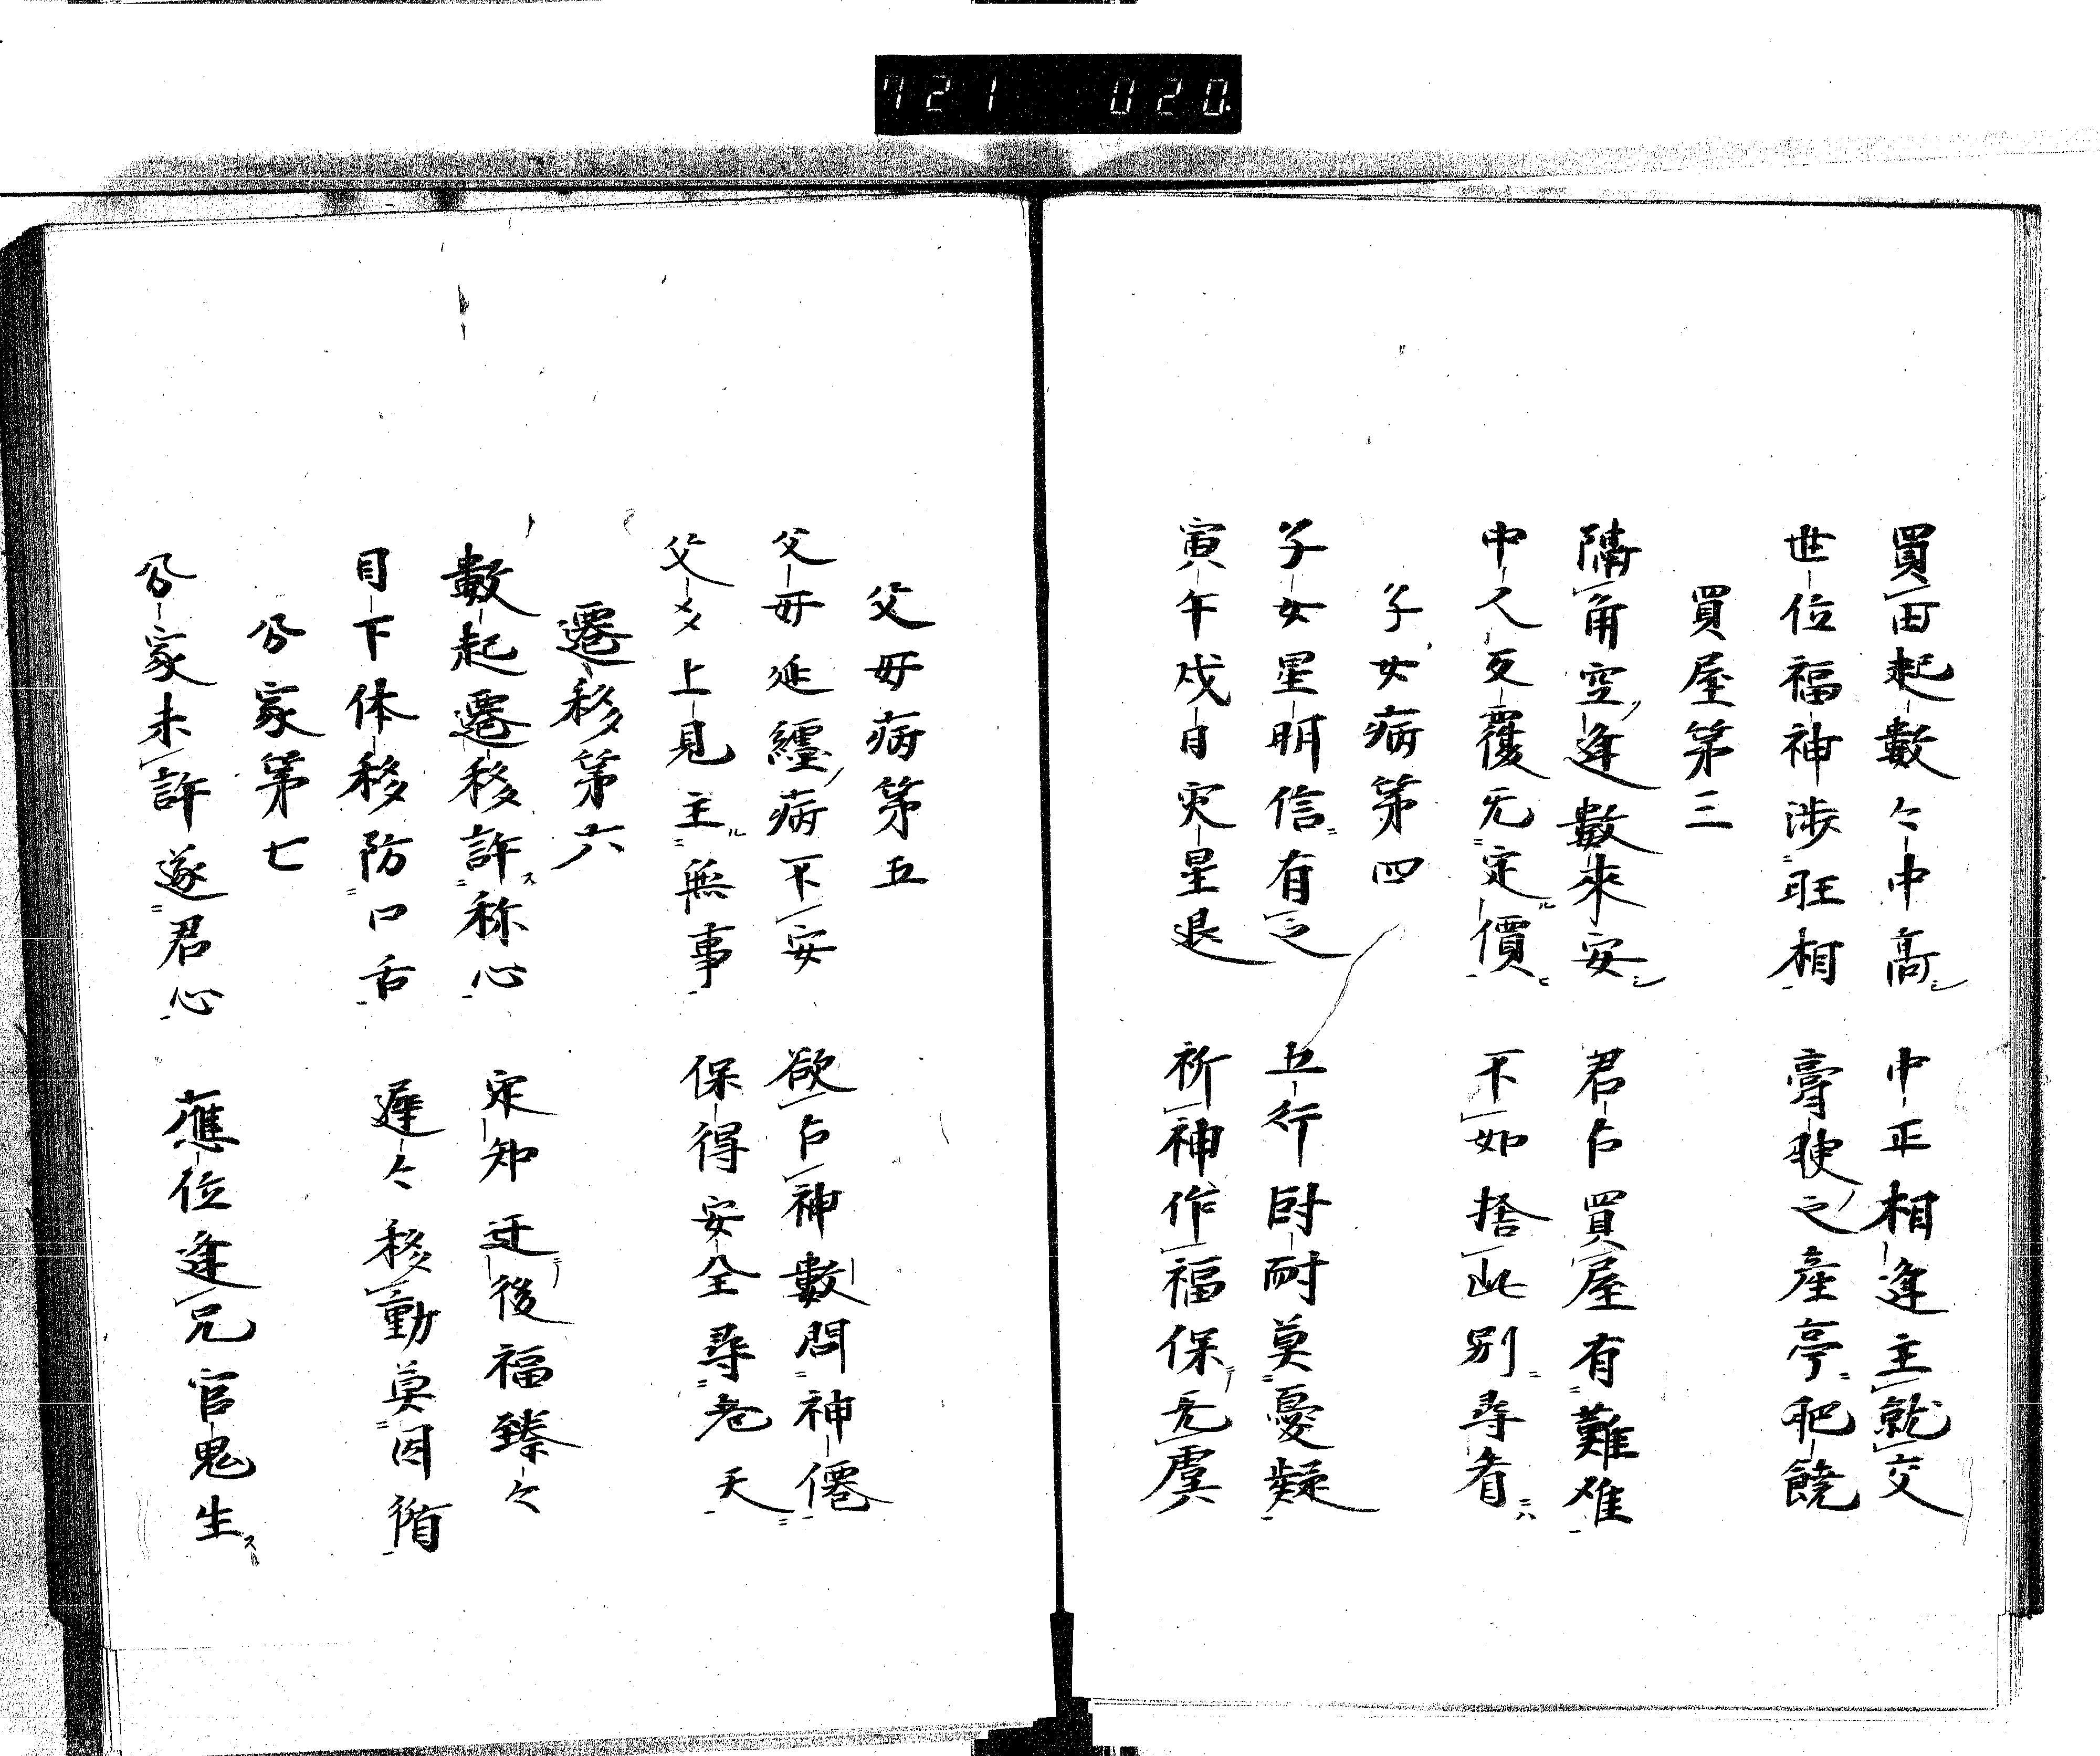 721 020
買田起數々中高 中正相逢主就交
世位福神涉旺相 膏腴之產亭肥饒
買屋第三
隔角空逢數來安 君占買屋有難难
中人反覆无定價 不如捨此別尋看
子女病第四
子女星明信有之 五行尅耐莫憂疑
寅午戌日灾星退 祈神作福保无虞
父母病第五
父母延纏病不安 欲占神數問神僊
父爻上見主無事 保得安全尋老天
遷移第六
數起遷移許称心 定知迁後福臻々
目下休移防口舌 遲々移動莫因循
分家第七
分家未許遂君心 應位逢兄官鬼生